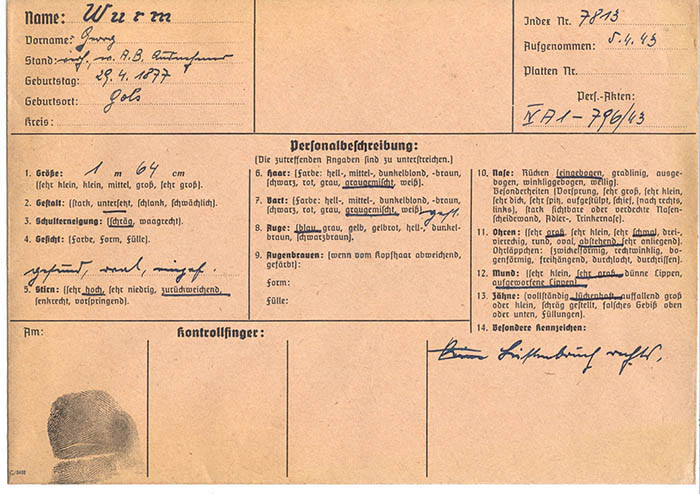 Name: Wurm
Vorname: Georg
Stand: verh., A.B.
Geburtstag: 29.4.1877
Geburtsort: Gols
Kreis:
Index Nr. 7813
Aufgenommen: 5.4.43
Platten Nr.
Pers.-Akten:
IV A 1 - 796/43
Personalbeschreibung:
(Die zutreffenden Angaben sind zu unterstreichen.)
1. Größe: 1 m 64 cm
(sehr klein, klein, mittel, groß, sehr groß).
2. Gestalt: (stark, untersetzt, schlank, schwächlich).
3. Schulterneigung: (schräg, waagrecht).
4. Gesicht: (Farbe, Form, Fülle).
gesund, oval, eingef.
5. Stirn: (sehr hoch, sehr niedrig, zurückweichend,
senkrecht, vorspringend).
6. Haar: (Farbe: hell-, mittel-, dunkelblond, -braun,
schwarz, rot, grau, graugemischt, weiß).
7. Bart: (Farbe: hell-, mittel-, dunkelblond, -braun,
schwarz, rot, grau, graugemischt, weiß)
8. Auge: (blau, grau, gelb, gelbrot, hell-, dunkel-
braun, schwarzbraun).
9. Augenbrauen: (wenn vom Kopfhaar abweichend,
gefärbt):
Form:
Fülle:
10. Nase: Rücken (eingebogen, gradlinig, ausge-
bogen, winkliggebogen, wellig).
Besonderheiten (Vorsprung, sehr groß, sehr klein,
sehr dick, sehr spitz, aufgestülpt, schief, (nach rechts,
links), stark sichtbare oder verdeckte Nasen-
scheidewand, Adler-, Trinkernase).
11. Ohren: (sehr groß, sehr klein, sehr schmal, drei-,
viereckig, rund, oval, abstehend, sehr anliegend).
Ohrläppchen: (zwickelförmig, rechtwinklig, bo-
genförmig, freihängend, durchlocht, durchrissen).
12. Mund: (sehr klein, sehr groß, dünne Lippen,
aufgeworfene Lippen).
13. Zähne: (vollständig, lückenhaft, auffallend groß
oder klein, schräg gestellt, falsches Gebiß oben
oder unten, Füllungen).
14. Besondere Kennzeichen:
Keine Leistenbruch rechts.
Am:
Kontrollfinger: